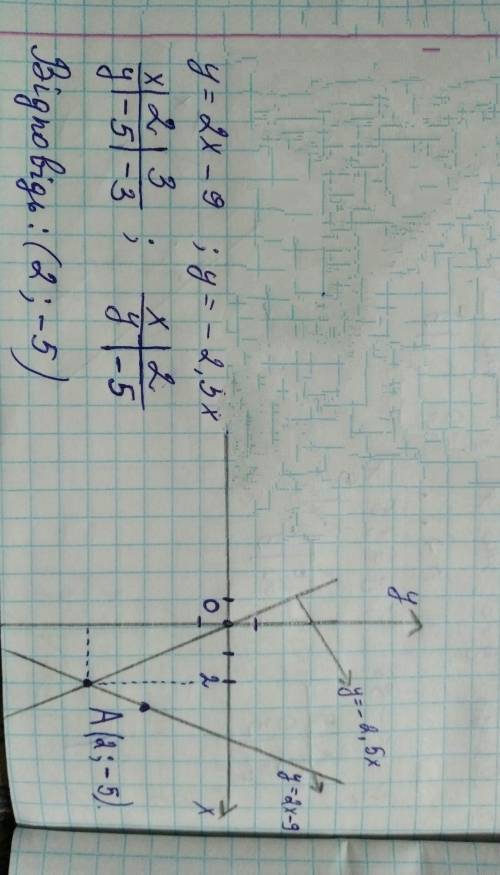 y = 2x - 9 ; y = - 2,5x
x | 2 | 3 ; x | 2
y | -5 | -3 ; y | -5
Відповідь: (2 ; -5)
y
y = - 2,5x
0
2
x
y = 2x - 9
A (2 ; -5).